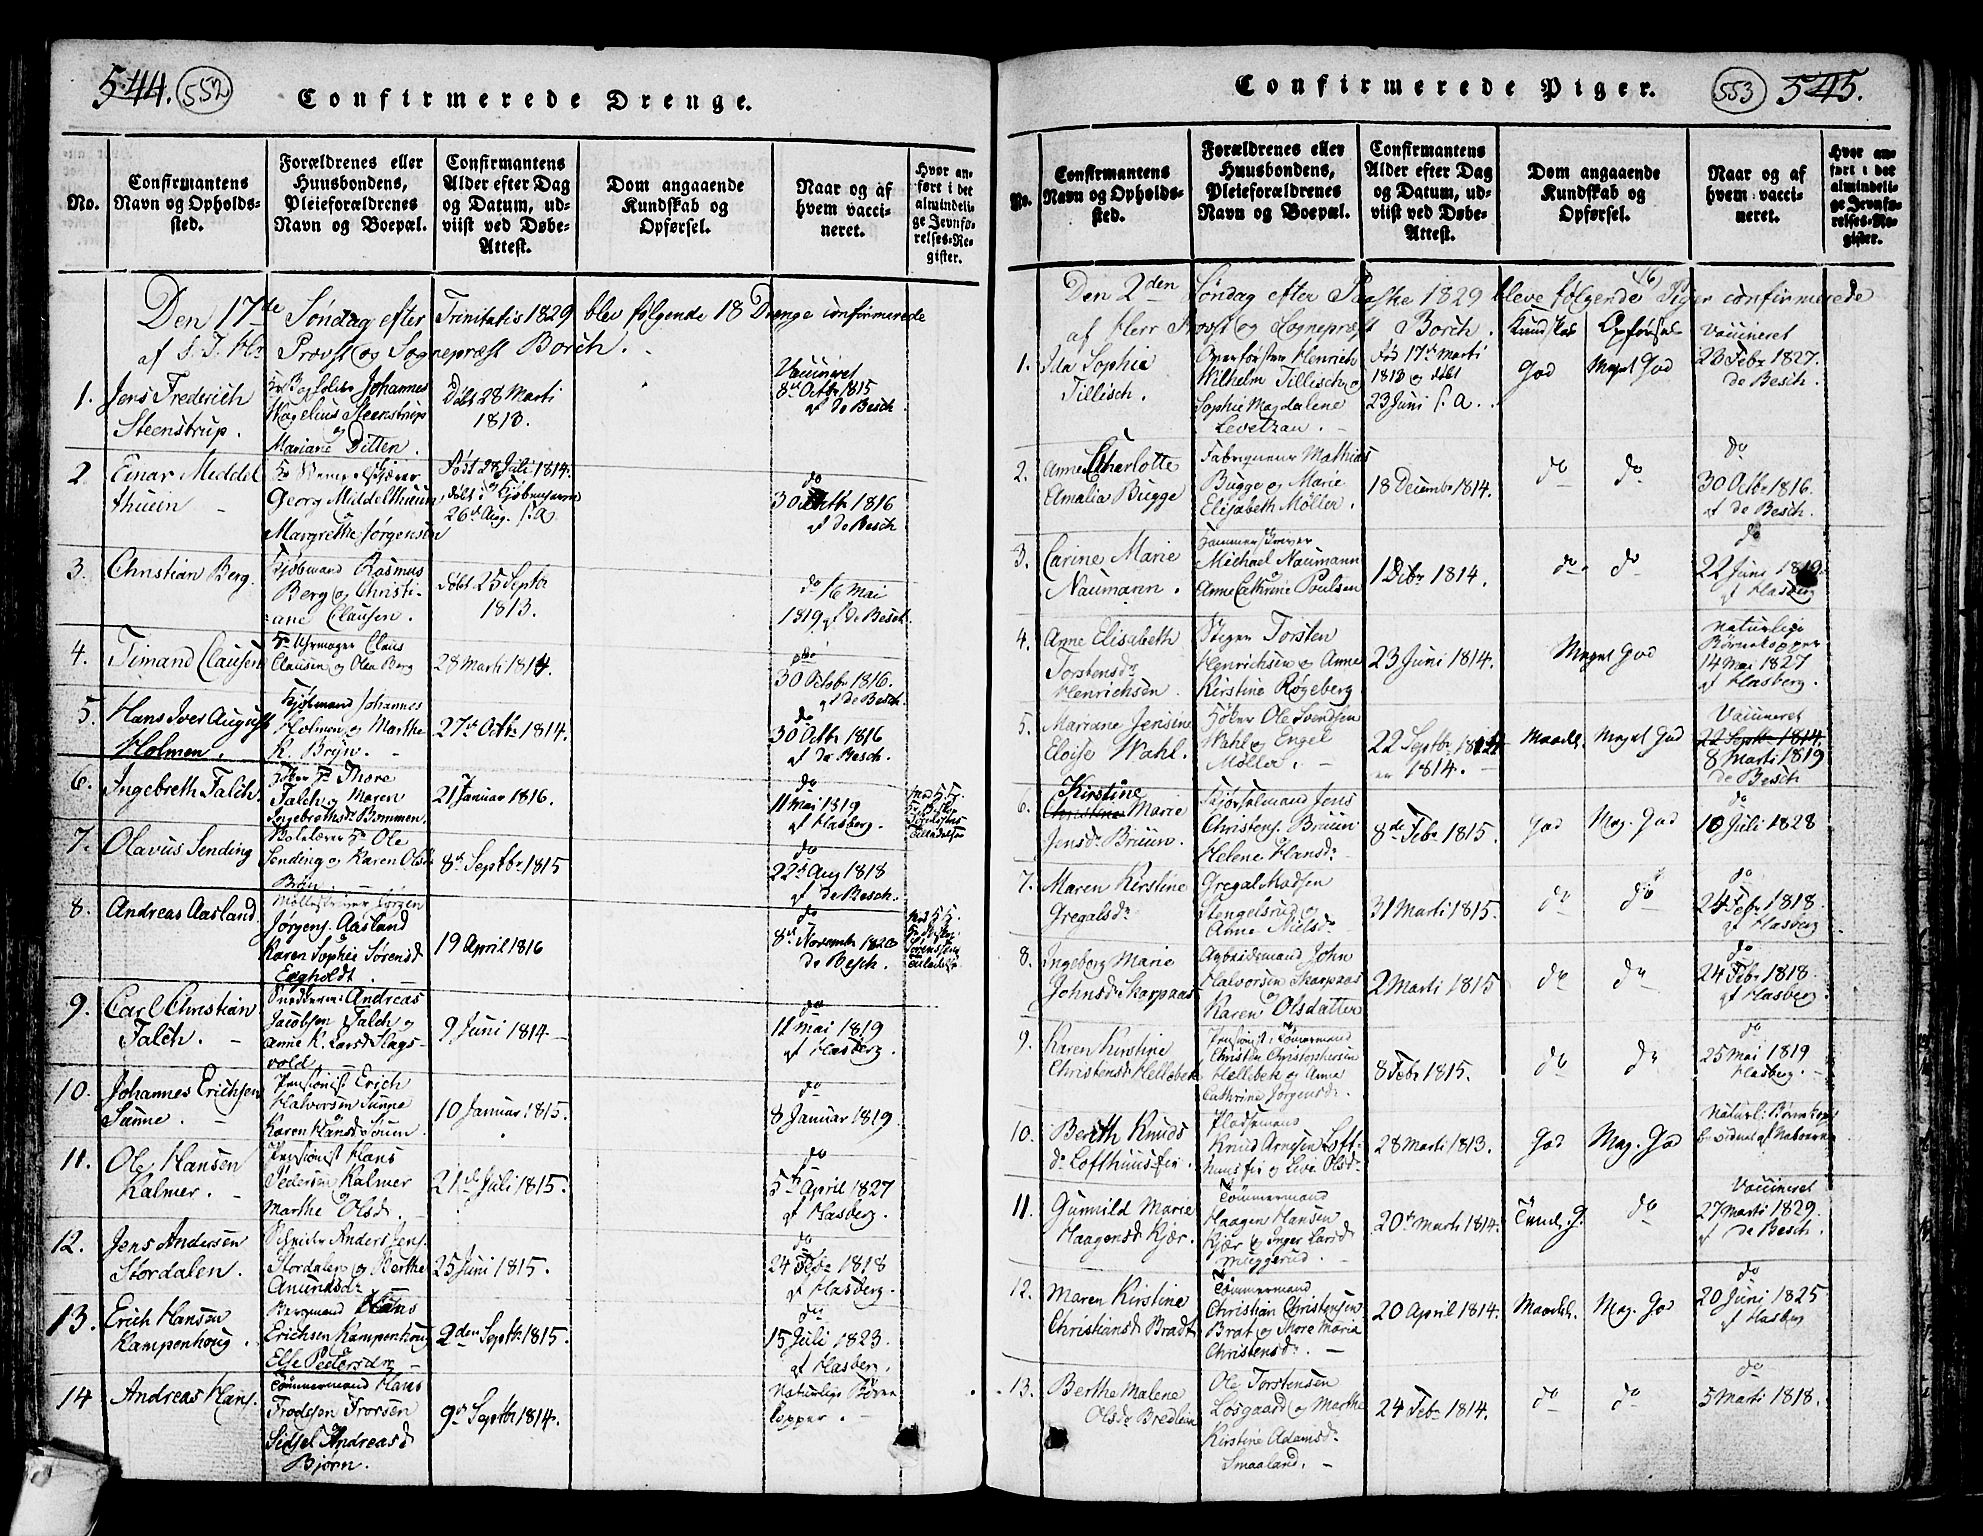 544. 552 Confirmerede Drenge.
No.
Confirmantens
Navn og Opholds-
sted.
Forældrenes eller
Huusbondens,
Pleieforældrenes
Navn og Boepæl.
Confirmantens
Alder efter Dag
og Datum, ud-
viist ved Døbe-
Attest.
Dom angaaende
Kundskab og
Opførsel.
Naar og af
hvem vacci-
neret.
Hvor an-
ført i det
almindeli-
ge Jevnfø-
relses-Re-
gister.
Den 17de Søndag efter Trinitatis 1829 blev følgende 18 Drenge confirmerede
af S. T. Hr Provst og Sognepræst Borch.
1. Jens Frederich
Steenstrup.
Johannes
Steenstrup
og
Mariane Ditten.
Døbt 28 Marti
1813.
Vaccineret
8de Octbr 1815
af de Besch.
2. Einar Middel
thuun
Georg Middelthuun,
og
Margrethe Jørgensen
Født 28 Juli 1814.
døbt i Kjøbenhavn
26 Aug. s. a
do
30 Octbr 1816
af de Besch
3. Christian Berg.
Kjøbmand Rasmus
Berg og Christi-
ane Clausen.
døbt 25 Septbr
1813.
do 16 Mai
1819 af de Besch.
4. Timand Clausen
Sr Uhrmager Claus
Clausen og Olea Berg
28 Marti 1814.
do
30 Octobr 1816.
af de Besch.
5. Hans Iver August
Holmen.
Kjøbmand Johannes
Holmen og Marthe
K. Bryn.
27de Octbr 1814.
do
30 Octbr 1816
af de Besch.
6. Ingebreth Falch.
Thore
Falch og Maren
Ingebrethsdr Bommen.
21 Januar 1816.
do
11 Mai 1819
af Hasberg.
7. Olavus Sending
Sr Ole
Sending og Karen Olsdr
Brun
8de Septbr 1815
do
22de Aug 1818
af de Besch.
8. Andreas Aasland.
Jørgen
Jørgens. Aasland
og
Karen Sophie Sørensd
Engholdt.
19 April 1816
do
8de Novembr 1820
de Besch.
9. Carl Christian
Falch.
Andreas
Jacobsen Falch og
Anne K. Larsd Slags-
vold
9 Juni 1814
do
11 Mai 1819
af Hasberg.
10. Johannes Erichsen
Sanne.
Pensionist Erich
Halvorsen Sanne
og
Karen Hansd Soum
10 Januar 1815.
do
8 Januar 1819.
11. Ole Hansen
Kalmer.
Pensionist Hans
Pedersen Kalmer
og
Marthe Olsd.
21de Juli 1815.
do
5te April 1827
af Hasberg.
12. Jens Andersen
Stordalen.
Anders Jens.
Stordalen og Berthe
Amundsdr
25 Juni 1815.
do
24 Febr 1818
af Hasberg.
13. Erich Hansen
Kampenhoug.
Bergmand Hans
Erichsen Kampenhoug
og
Else Peetersdr
2den Septbr 1815.
do
15 Juli 1823.
af Hasberg.
14 Andreas Hans.
Tømmermand Hans
Frodesen Frorsen
og
Sidsel Andreasd
Bjørn.
9de Septbr 1814.
Naturlige Børne
kopper.
Confirmerede Piger. 553 545.
No.
Confirmantens
Navn og Opholds-
sted.
Forældrenes eller
Huusbondens,
Pleieforældrenes
Navn og Boepæl.
Confirmantens
Alder efter Dag
og Datum, ud-
viist ved Døbe-
Attest.
Dom angaaende
Kundskab og
Opførsel.
Naar og af
hvem vacci-
neret.
Hvor an-
ført i det
almindeli-
ge Jevnfø-
relses-Re-
gister.
Den 2den Søndag efter Paaske 1829 bleve følgende 16 Piger confirmerede
af Herr Provst og Sognepræst Borch. Kundskab Opførsel
1. Ida Sophie
Tillisch.
Henrich
Wilhelm Tillisch og
Sophie Magdalene
Levetzau.
Fød 17de Marti
1813 og døbt
23 Juni s. a.
God Meget God
Vaccineret
20 Febr 1827.
de Besch.
2. Anne Charlotte
Amalia Bugge
Fabriqueur Mathias
Bugge og Marie
Elisabeth Møller.
18 Decembr 1814.
do do
do
30 Octbr 1816.
af de Besch.
3. Carine Marie
Naumann.
Michael Naumann
og
Anne Cathrine Poulsen
1 Dcbr 1814.
do do
do
22 Juni 1819
af Hasberg
4. Anne Elisabeth
Torstensdr
Henrichsen.
Stiger Torsten
Henrichsen og Anne
Kirstine Røgeberg.
23 Juni 1814.
Meget God
Naturlige
Børnekopper
14 Mai 1827
af Hasberg.
5. Mariane Jensine
Eloise Wahl.
Ole Svendsen
Wahl og Engel
Møller.
22 Septbr
1814.
Maadel. Meget God
Vaccineret
22 Septbr 1814.
8 Marti 1819
de Besch
6. Kirstine
Christine Marie
Jensdr Bruun.
Jens
Christens. Bruun
Helene Hansdr
8de Febr 1815.
God Meg. God
do
10 Juli 1828
7. Maren Kirstine
Gregalsdr
Gregal Madsen
Stengelsrud og
Anne Nielsdr
31 Marti 1815.
do do
do
24 Febr 1818.
af Hasberg
8. Ingeborg Marie
Johnsdr Skarpaas
Arbeidsmand John
Halvorsen Skarpaas
og
Karen Olsdatter
2 Marti 1815
do do
do
24 Febr 1818.
af Hasberg.
9. Karen Kirstine
Christensd Hellebek
Pensionist Tømmermand
Christen Christophersen
Hellebek og Anne
Cathrine Jørgensdr.
8 Febr 1815.
do do
do
25 Mai 1819
Hasberg.
10. Berith Knuds
dr Lofthuus
Pladsmand
Knud Arnesen Loft-
huus og Live Olsdr
28 Marti 1813.
God Meg. God
Naturl: Børnekopper
bevidnet af Naboerne
11. Gunnild Marie
Haagensd Kjær.
Tømmermand
Haagen Hansen
Kjær og Inger Larsd
Muggerud.
20de Marti 1814.
do
Vaccineret
27 Marti 1829.
af de Besch.
12. Maren Kirstine
Christiansd Bradt
Tømmermand
Christian Christensen
Brat og Thore Maria
Christensdr.
20 April 1814.
Maadel. Meg. God
do
20 Juni 1825
af Hasberg
13. Berthe Malene
Olsdr Bredlien
Ole Torstensen
Losgaard og Marthe
Kirstine Adamsdr
Smaaland.
24 Febr 1814.
do do
do
5 Marti 1818.